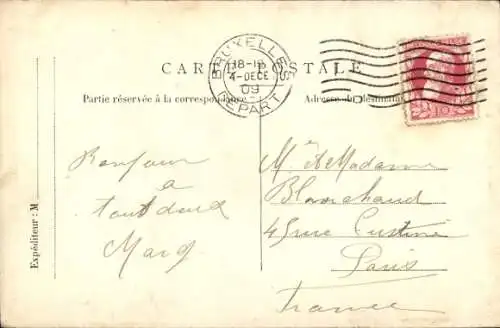 CARTE POSTALE
BRUXELLES
18-19
4-DECE
09
DEPART
Partie réservée à la correspondance
Adresse du destinataire
10
Expéditeur : M
Bonjour
a
tout
Marg
Mr et Madame
Blanchaud
45 rue
Paris
France